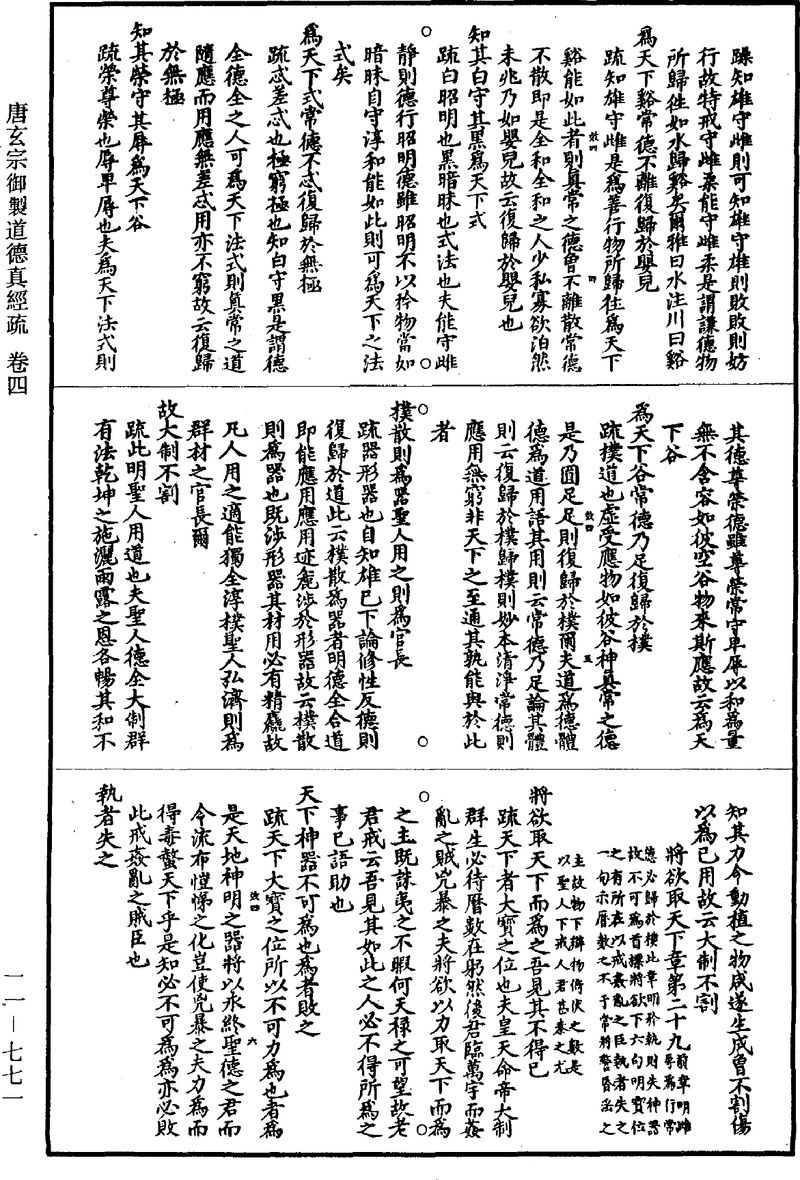 唐玄宗御製道德真經疏 卷四
躁知雄守雌則可知雄守雄則敗敗則妨
行故特戒守雌柔能守雌柔是謂謙德物
所歸往如水歸谿矣爾雅曰水注川曰谿
為天下谿常德不離復歸於嬰兒
疏知雄守雌是為善行物所歸往為天下
谿能如此者則真常之德曾不離散常德
不散即是全和全和之人少私寡欲泊然
未兆乃如嬰兒故云復歸於嬰兒也
知其白守其黑為天下式
疏白昭明也黑暗昧也式法也夫能守雌
靜則德行昭明德雖昭明不以矜物當如
暗昧自守淳和能如此則可為天下之法
式矣
為天下式常德不忒復歸於無極
疏忒差忒也極窮極也知白守黑是謂德
全德全之人可為天下法式則真常之道
隨應而用應無差忒用亦不窮故云復歸
於無極
知其榮守其辱為天下谷
疏榮尊榮也辱卑辱也夫為天下法式則
其德尊榮德雖尊榮常守卑辱以和為量
無不含容如彼空谷物來斯應故云為天
下谷
為天下谷常德乃足復歸於樸
疏樸道也虛受應物如彼谷神真常之德
是乃圓足足則復歸於樸爾夫道為德體
德為道用語其用則云常德乃足論其體
則云復歸於樸歸樸則妙本清淨常德則
應用無窮非天下之至通其孰能與於此
者
樸散則為器聖人用之則為官長
疏器形器也自知雄已下論修性反德則
復歸於道此云樸散為器者明德全合道
即能應用應用迹麁涉於形器故云樸散
則為器也既涉形器其材用必有精麤故
凡人用之適能獨全淳樸聖人弘濟則為
群材之官長爾
故大制不割
疏此明聖人用道也夫聖人德全大制群
有法乾坤之施灑雨露之恩各暢其和不
知其力令動植之物咸遂生成曾不割傷
以為己用故云大制不割
將欲取天下章第二十九前章明雌辱為行常
德必歸於樸此章明矜執則失神器
故不可為首標將欲下六句明寶位
之有所在以戒姦亂之臣執者失之
一句示曆數之不于常將警昏淫之
主故物下辯物倚伏之數是
以聖人下戒人君甚泰之尤
將欲取天下而為之吾見其不得已
疏天下者大寶之位也夫皇天命帝大制
群生必待曆數在躬然後君臨萬宇而姦
亂之賊兇暴之夫將欲以力取天下而為
之主既誅夷之不暇何天祿之可望故老
君戒云吾見其如此之人必不得所為之
事已語助也
天下神器不可為也為者敗之
疏天下大寶之位所以不可力為也者為
是天地神明之器將以永終聖德之君而
令流布愷悌之化豈使兇暴之夫力為而
得毒螫天下乎是知必不可為為亦必敗
此戒姦亂之賊臣也
執者失之
一一—七七一